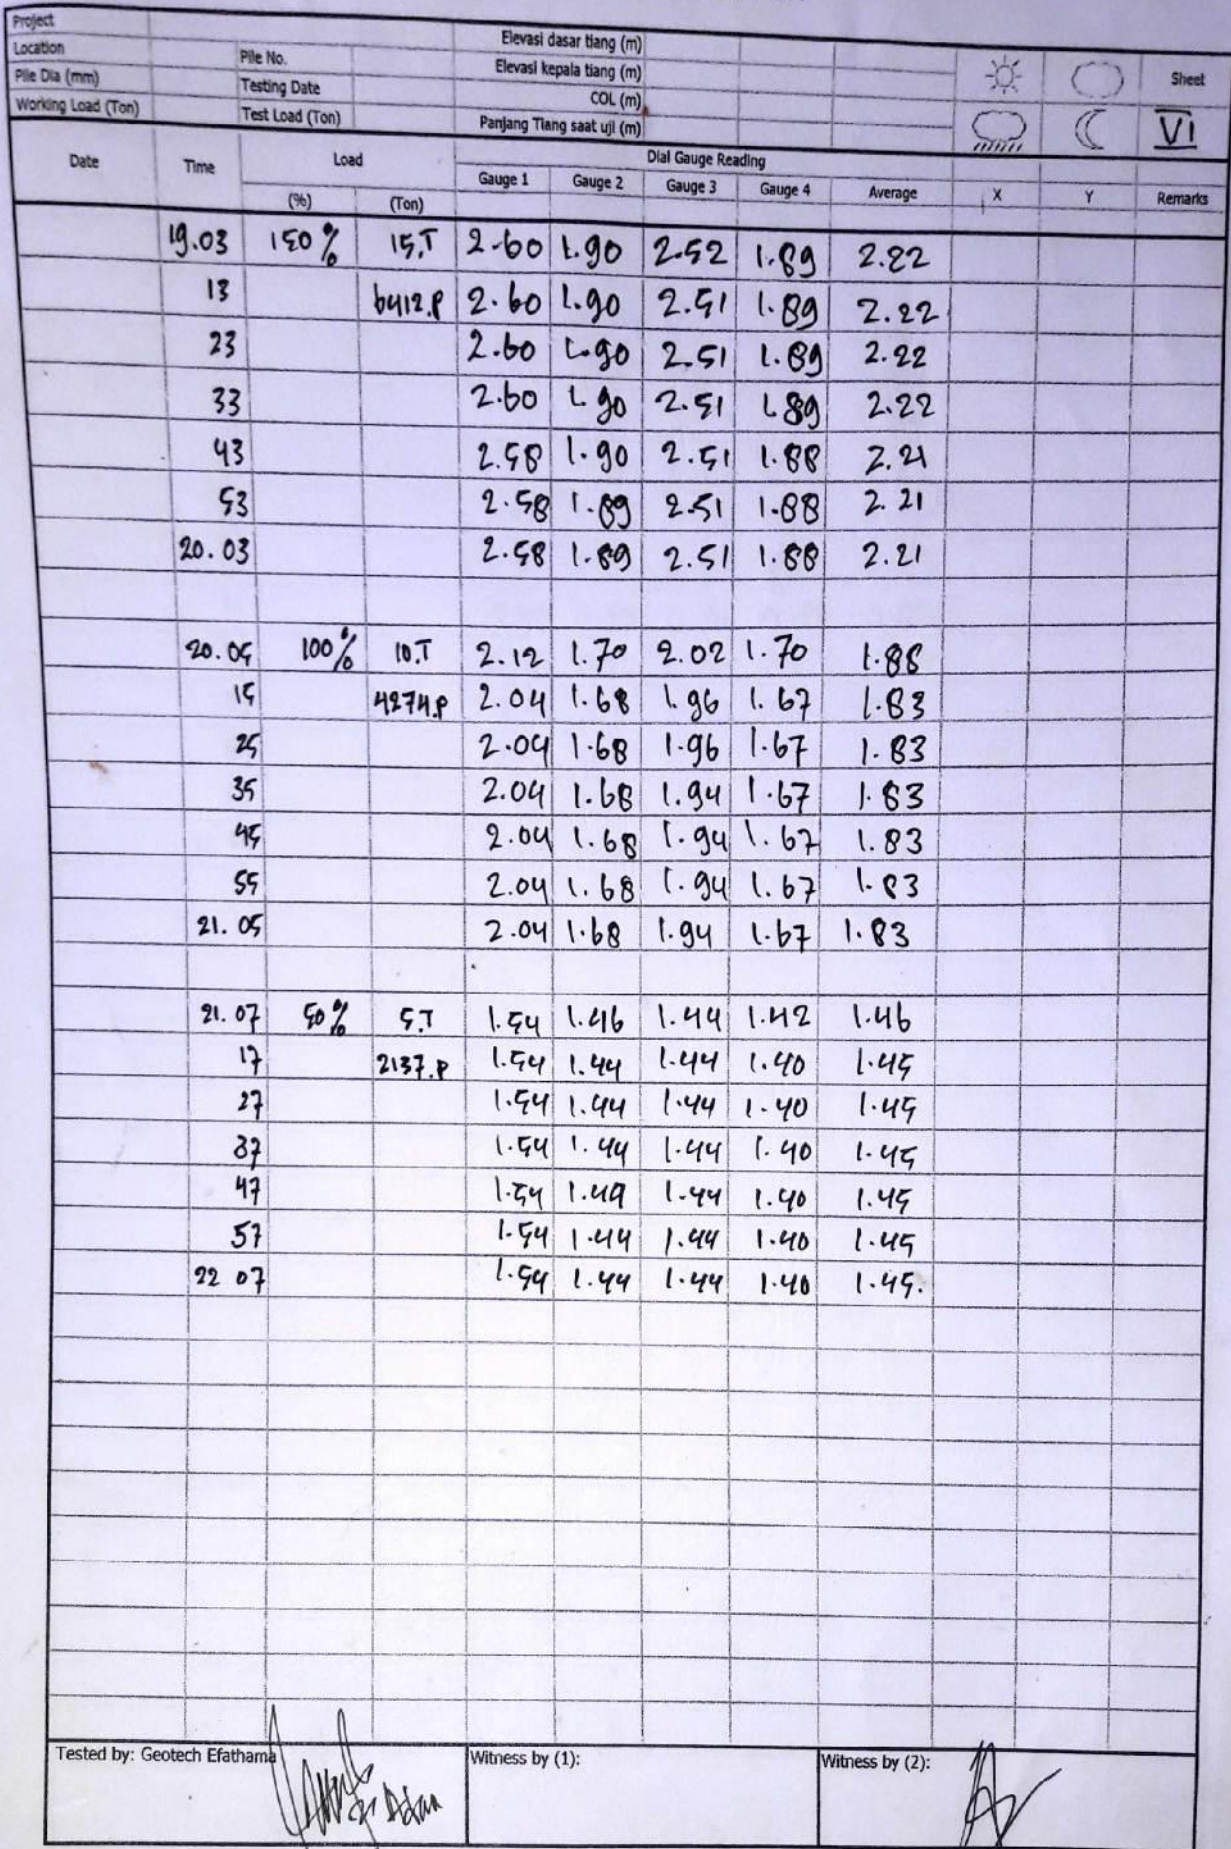 Project
Location Pile No. Elevasi dasar tiang (m)
Pile Dia (mm) Testing Date Elevasi kepala tiang (m) Sheet
Working Load (Ton) Test Load (Ton) COL (m)
Panjang Tiang saat uji (m) VI
Date Time Load Dial Gauge Reading
(%) (Ton) Gauge 1 Gauge 2 Gauge 3 Gauge 4 Average X Y Remarks
19.03 150% 15.T 2.60 1.90 2.52 1.89 2.22
13 6412.P 2.60 1.90 2.51 1.89 2.22
23 2.60 1.90 2.51 1.89 2.22
33 2.60 1.90 2.51 1.89 2.22
43 2.58 1.90 2.51 1.88 2.21
53 2.58 1.89 2.51 1.88 2.21
20.03 2.58 1.89 2.51 1.88 2.21
20.05 100% 10.T 2.12 1.70 2.02 1.70 1.88
15 4274.P 2.04 1.68 1.96 1.67 1.83
25 2.04 1.68 1.96 1.67 1.83
35 2.04 1.68 1.94 1.67 1.83
45 2.04 1.68 1.94 1.67 1.83
55 2.04 1.68 1.94 1.67 1.83
21.05 2.04 1.68 1.94 1.67 1.83
21.07 50% 5.T 1.54 1.46 1.44 1.42 1.46
17 2137.P 1.54 1.44 1.44 1.40 1.45
27 1.54 1.44 1.44 1.40 1.45
37 1.54 1.44 1.44 1.40 1.45
47 1.54 1.44 1.44 1.40 1.45
57 1.54 1.44 1.44 1.40 1.45
22 07 1.54 1.44 1.44 1.40 1.45.
Tested by: Geotech Efathama Witness by (1): Witness by (2):